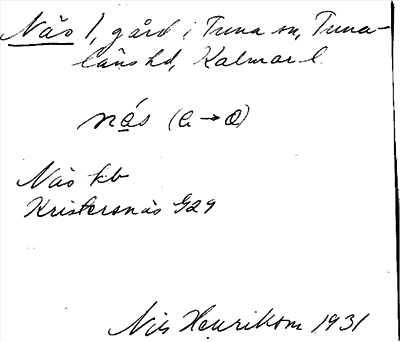 Näs 1, gård i Tuna sn, Tuna-
läns hd, Kalmar l.
nás (a → o)
Näs kb
Kristersnäs G29
Nils Henrikson 1931